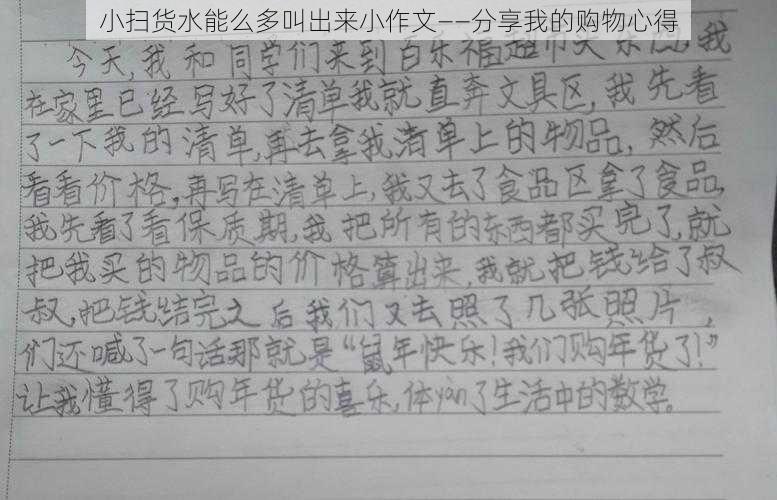 小扫货水能么多叫出来小作文——分享我的购物心得
今天,我和同学们来到百乐福超市买东西,我
在家里已经写好了清单我就直奔文具区,我先看
了一下我的清单,再去拿我清单上的物品,然后
看看价格,再写在清单上,我又去了食品区拿了食品,
我先看了看保质期,我把所有的东西都买完了,就
把我买的物品的价格算出来,我就把钱给了叔
叔,把钱结完之后我们又去照了几张照片,
们还喊了一句话那就是“鼠年快乐!我们购年货了!”
让我懂得了购年货的喜乐,体yàn了生活中的数学。